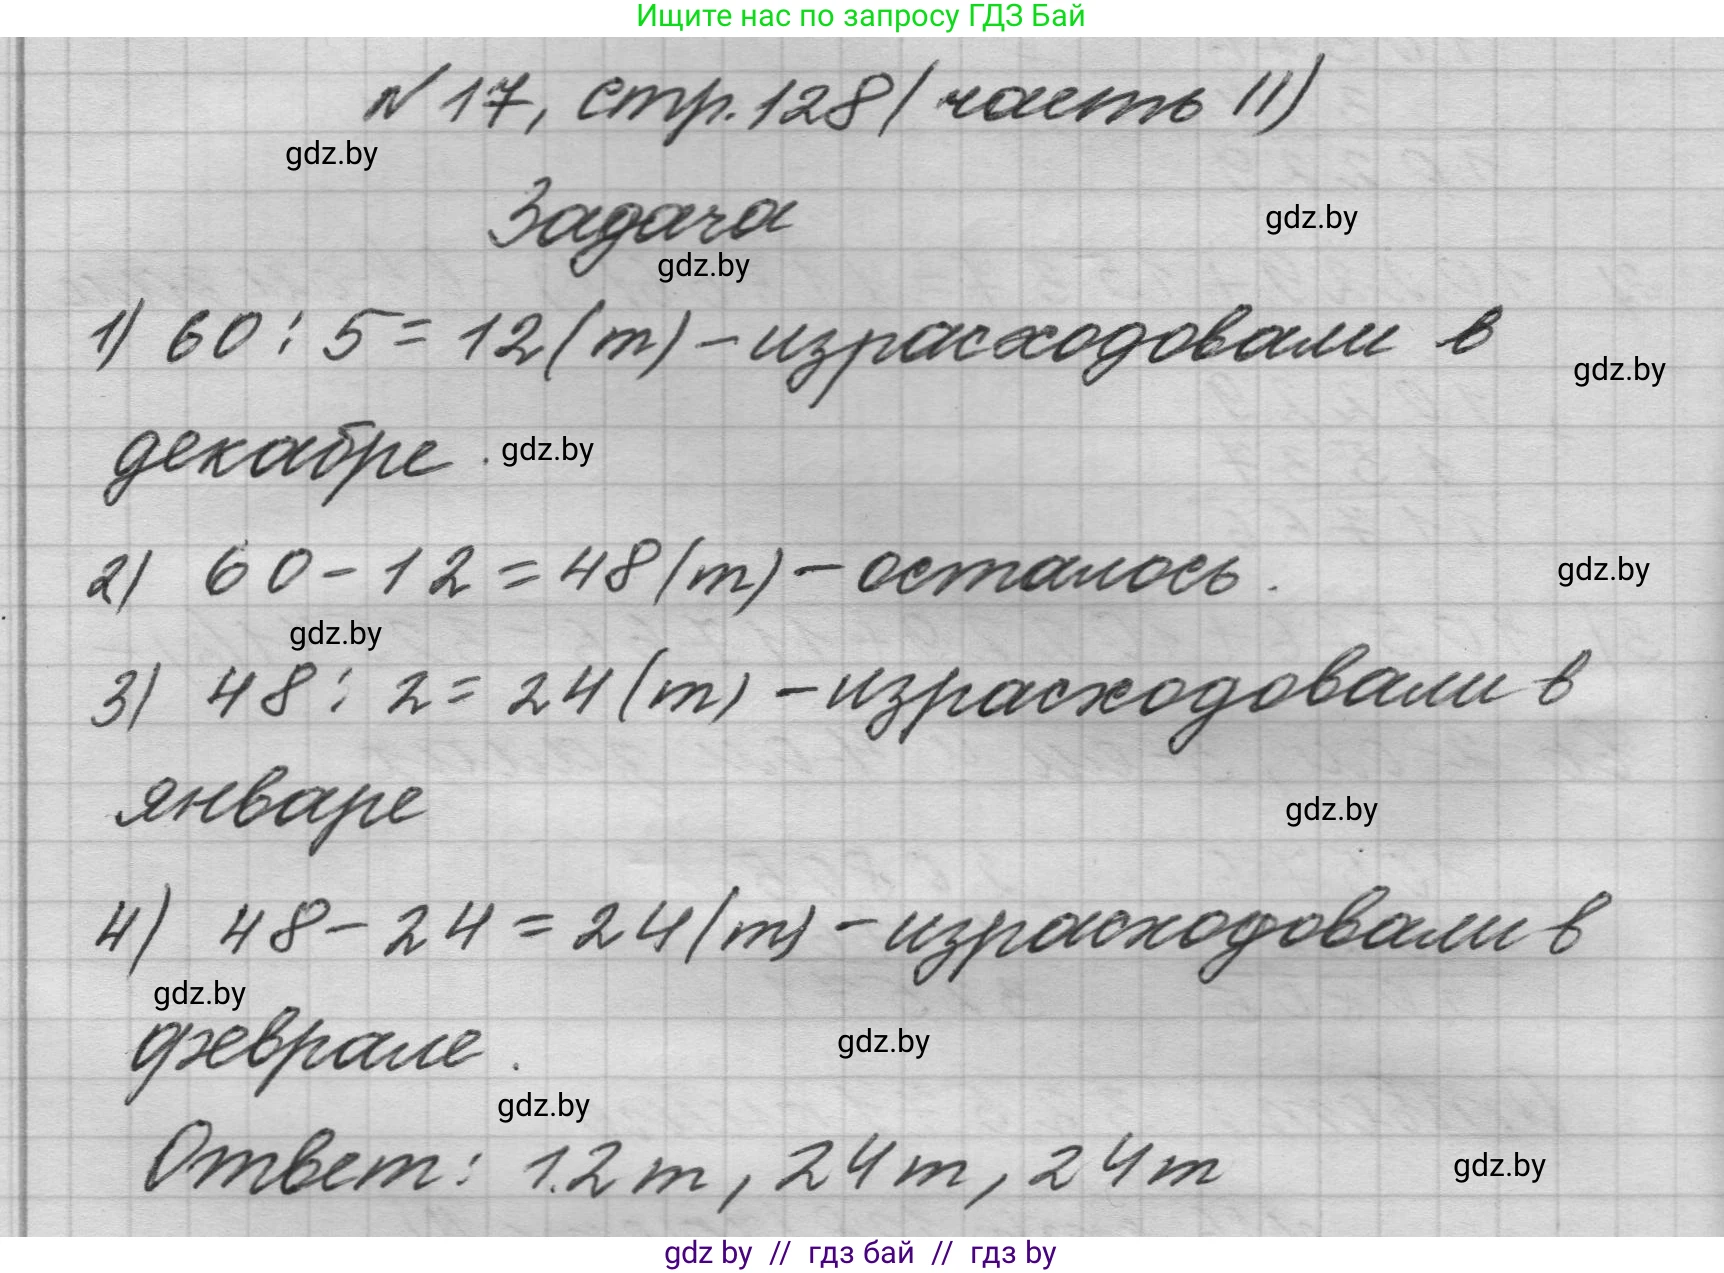 Ищите нас по запросу ГДЗ Бай
№ 17, стр. 128 (часть II)
gdz.by
Задача
gdz.by
gdz.by
1) 60 : 5 = 12 (т) - израсходовали в
gdz.by
декабре . gdz.by
2) 60 - 12 = 48 (т) - осталось .
gdz.by
gdz.by
3) 48 : 2 = 24 (т) - израсходовали в
январе
gdz.by
4) 48 - 24 = 24 (т) - израсходовали в
gdz.by
феврале .
gdz.by
gdz.by
Ответ: 12 т, 24 т, 24 т
gdz.by
gdz by // гдз бай // гдз by